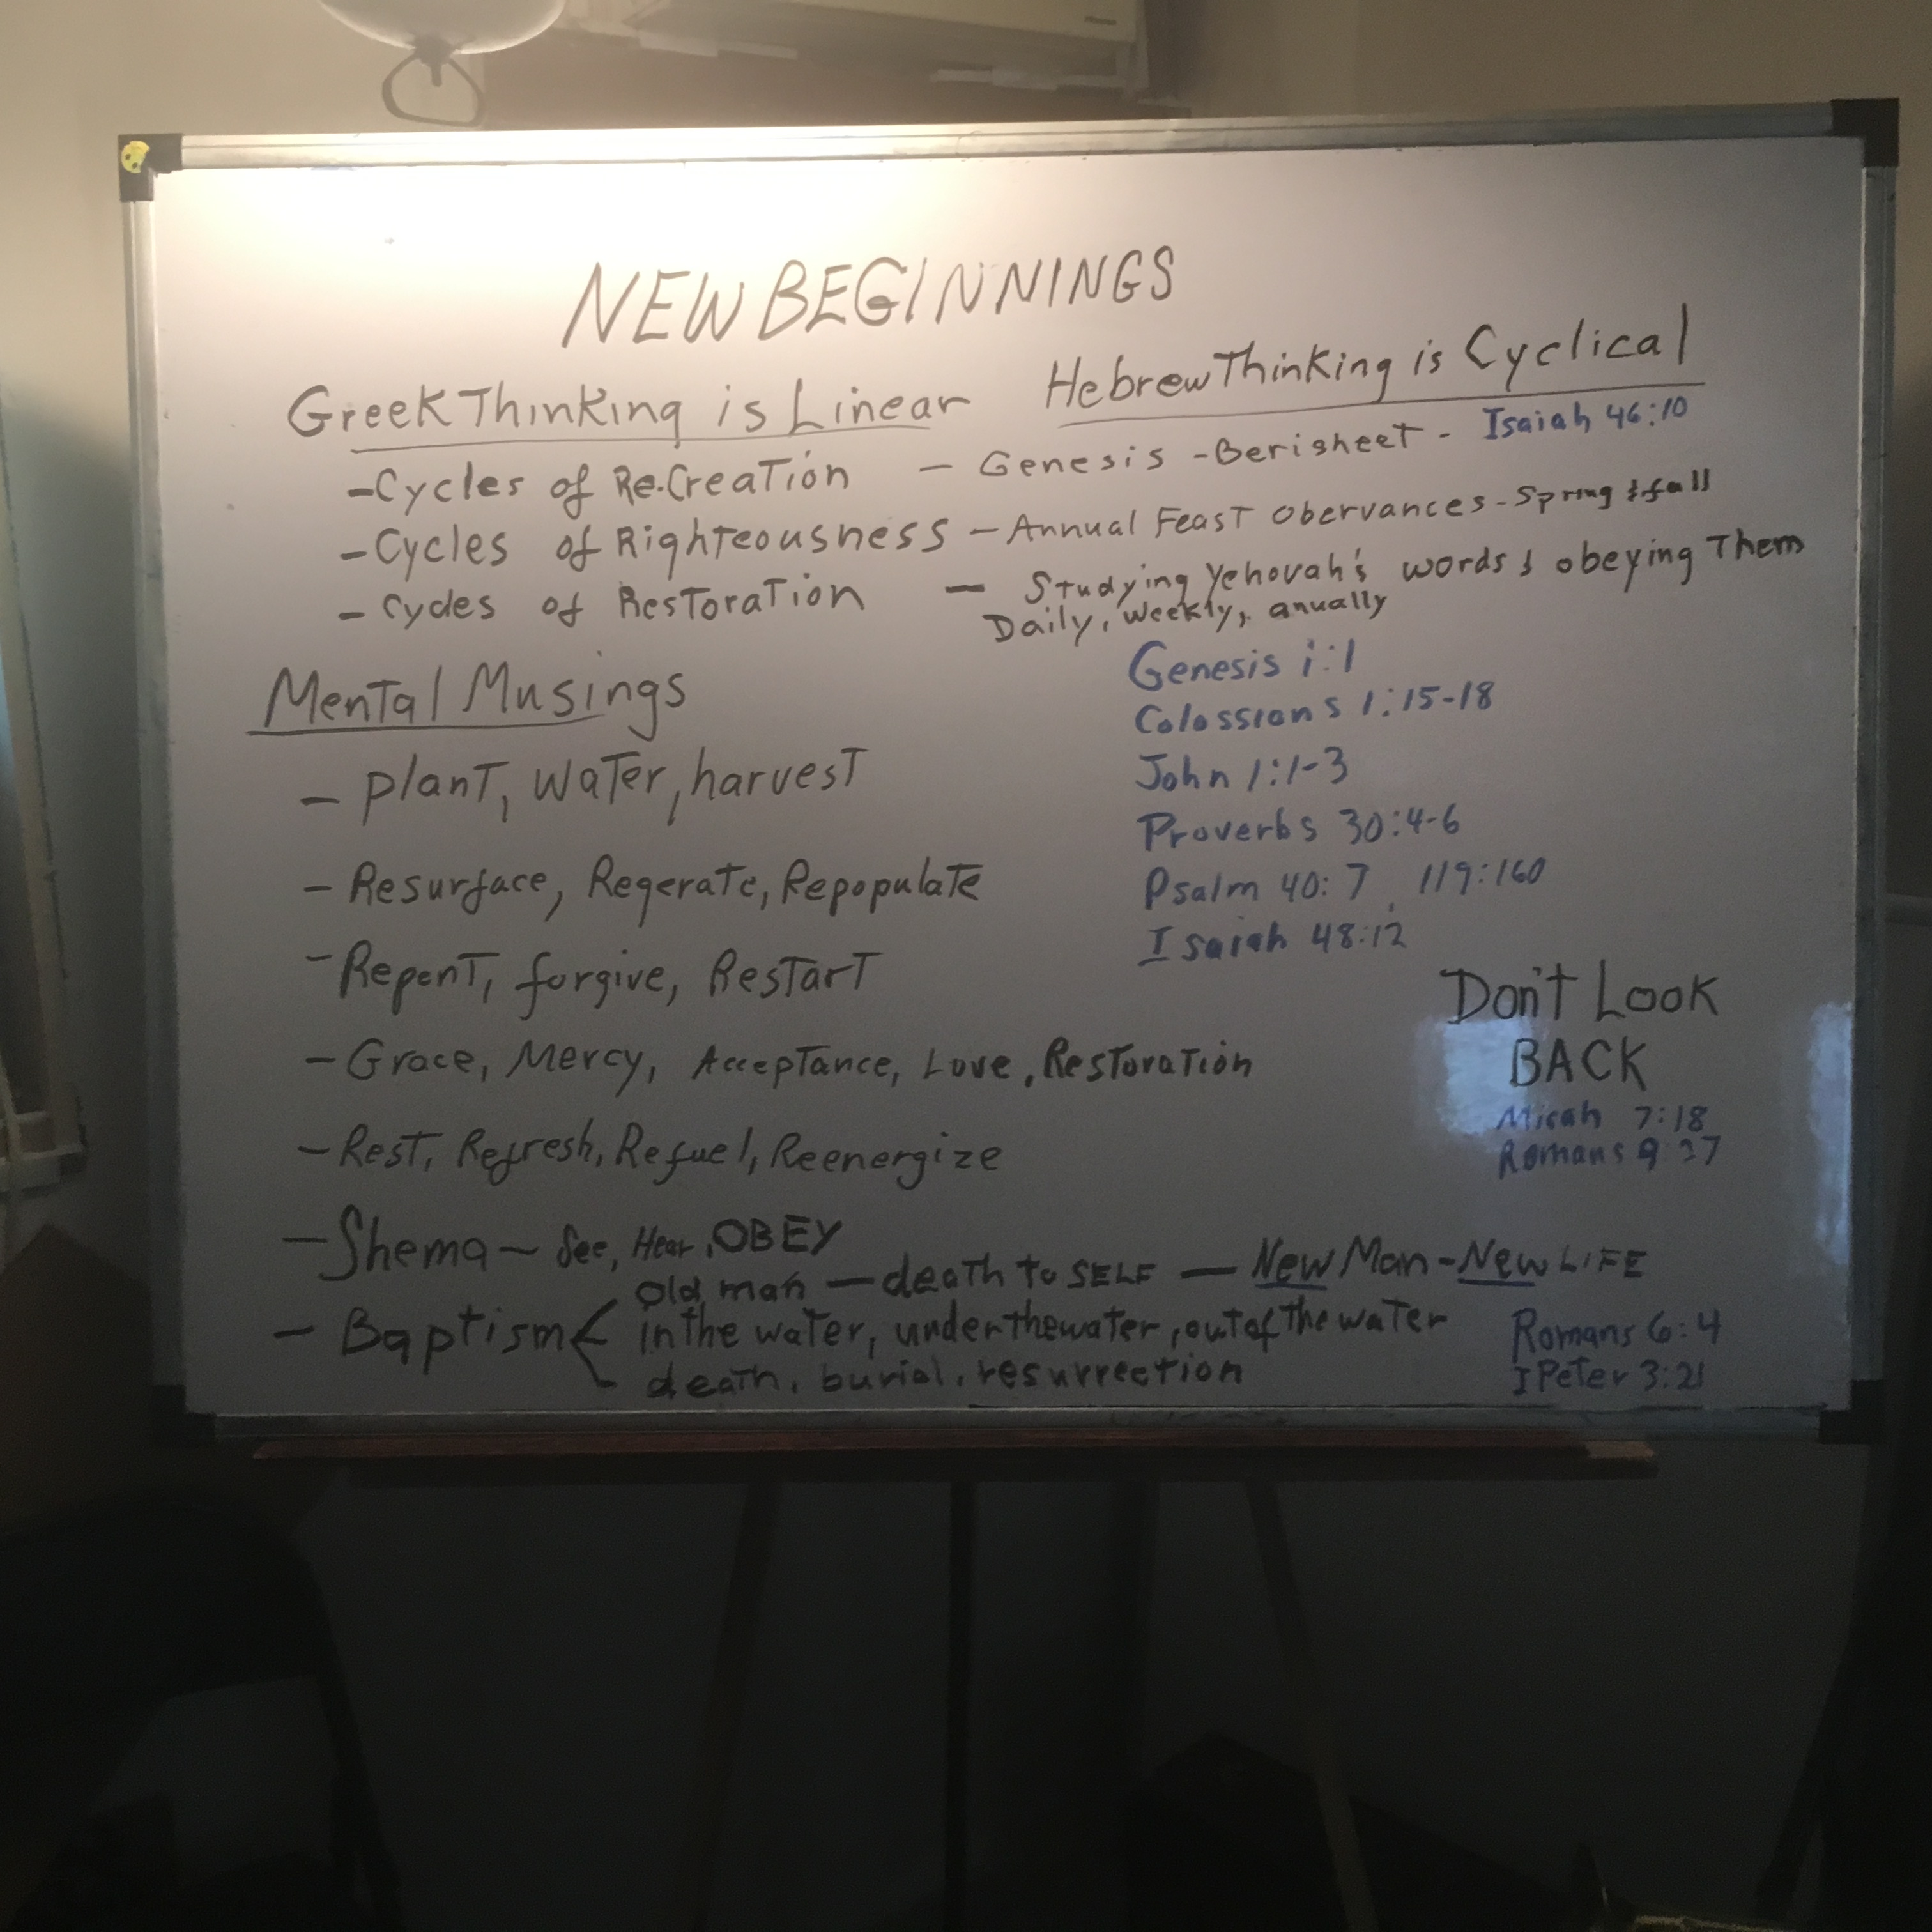 NEW BEGINNINGS
Greek Thinking is Linear
Hebrew Thinking is Cyclical
- Cycles of Re.Creation - Genesis - Berisheet - Isaiah 46:10
- Cycles of Righteousness - Annual Feast Obervances - Spring & fall
- Cycles of Restoration - Studying Yehovah's words & obeying Them
Daily, weekly, anually
Mental Musings
- plant, water, harvest
- Resurface, Regerate, Repopulate
- Repent, forgive, Restart
- Grace, Mercy, Acceptance, Love, Restoration
- Rest, Refresh, Refuel, Reenergize
- Shema - See, Hear, OBEY
Old man - death to SELF - New Man - New LIFE
- Baptism < in the water, under the water, out of the water
death, burial, resurrection
Genesis 1:1
Colossians 1:15-18
John 1:1-3
Proverbs 30:4-6
Psalm 40:7, 119:160
Isaiah 48:12
Don't Look
BACK
Micah 7:18
Romans
Romans 6:4
I Peter 3:21